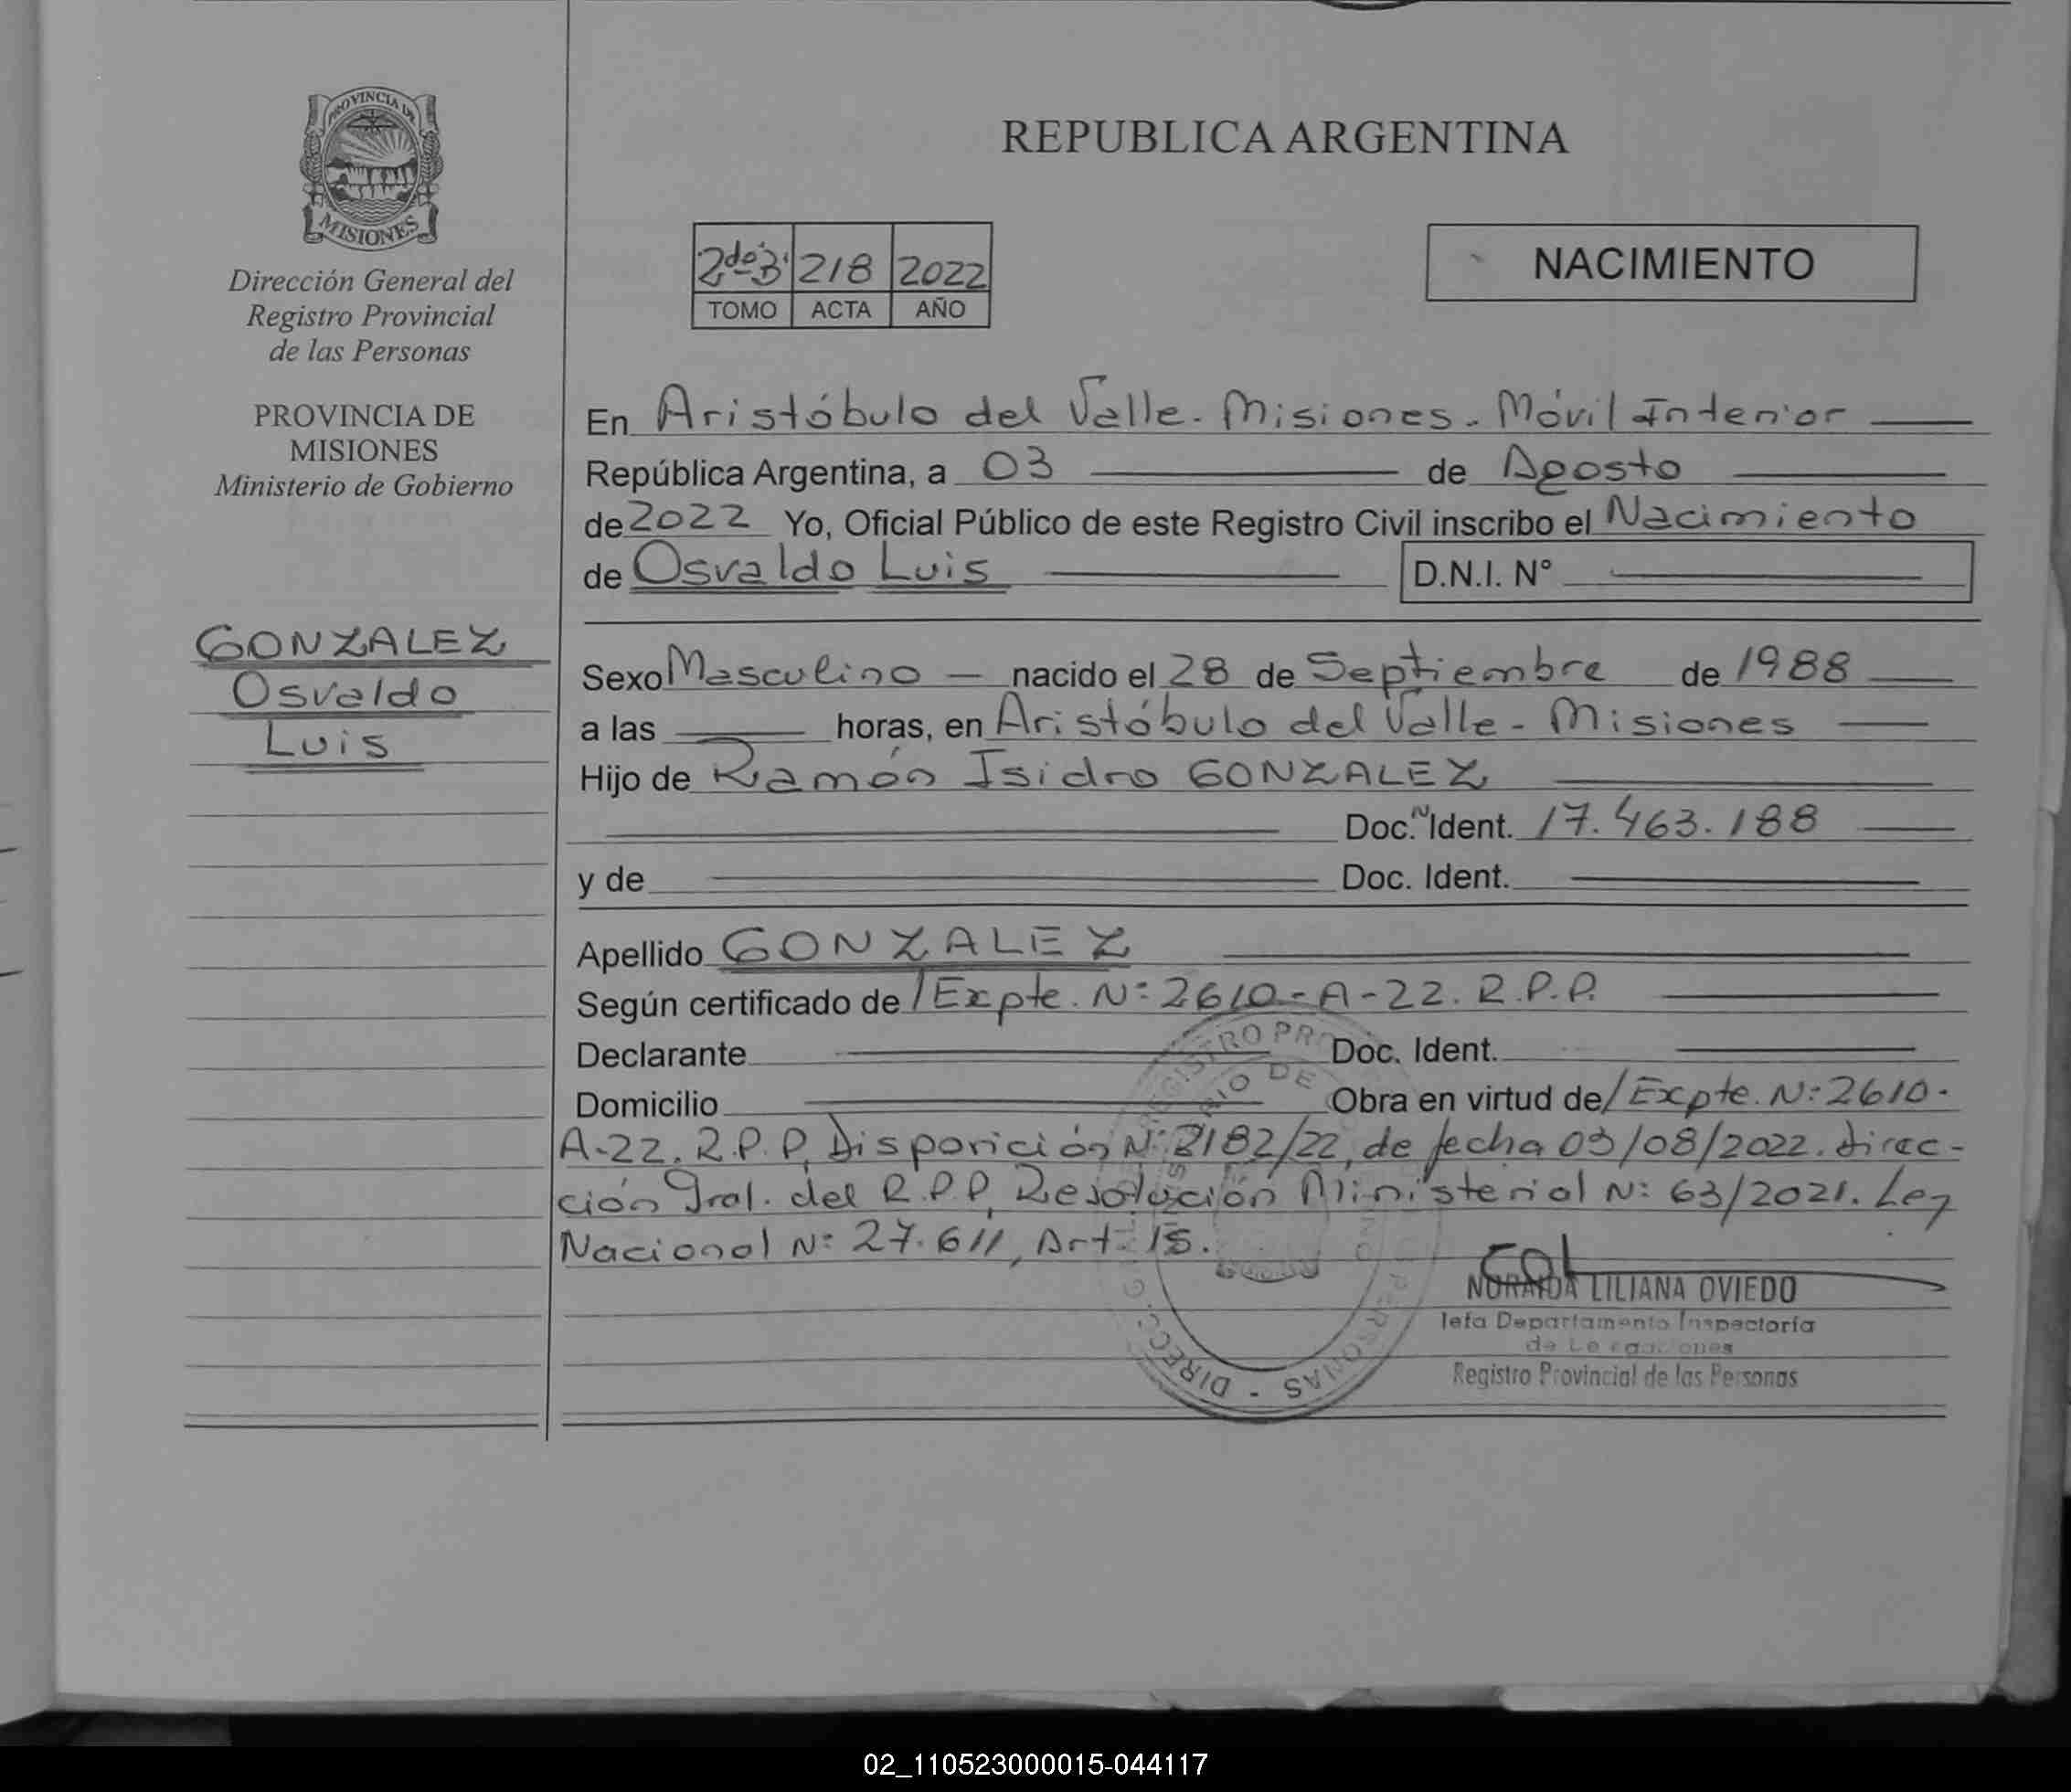 PROVINCIA DE
MISIONES
Dirección General del
Registro Provincial
de las Personas
PROVINCIA DE
MISIONES
Ministerio de Gobierno
GONZALEZ
Osvaldo
Luis
REPUBLICA ARGENTINA
2do B 218 2022
TOMO ACTA AÑO
NACIMIENTO
En Aristóbulo del Valle - Misiones - Móvil Interior
República Argentina, a 03 de Agosto
de 2022 Yo, Oficial Público de este Registro Civil inscribo el Nacimiento
de Osvaldo Luis D.N.I. N°
Sexo Masculino nacido el 28 de Septiembre de 1988
a las horas, en Aristóbulo del Valle - Misiones
Hijo de Ramón Isidro GONZALEZ
Doc. N Ident. 17.463.188
y de Doc. Ident.
Apellido GONZALEZ
Según certificado de / Expte. N: 2610-A-22. R.P.P.
Declarante Doc. Ident.
Domicilio Obra en virtud de / Expte. N: 2610-
A-22. R.P.P, Disposición N: 2182/22, de fecha 03/08/2022. Direc-
ción Gral. del R.P.P, Resolución Ministerial N: 63/2021. Ley
Nacional N: 27.611, Art. 15.
LILIANA OVIEDO
Jefa Departamento Inspectoría
Registro Provincial de las Personas
02_110523000015-044117